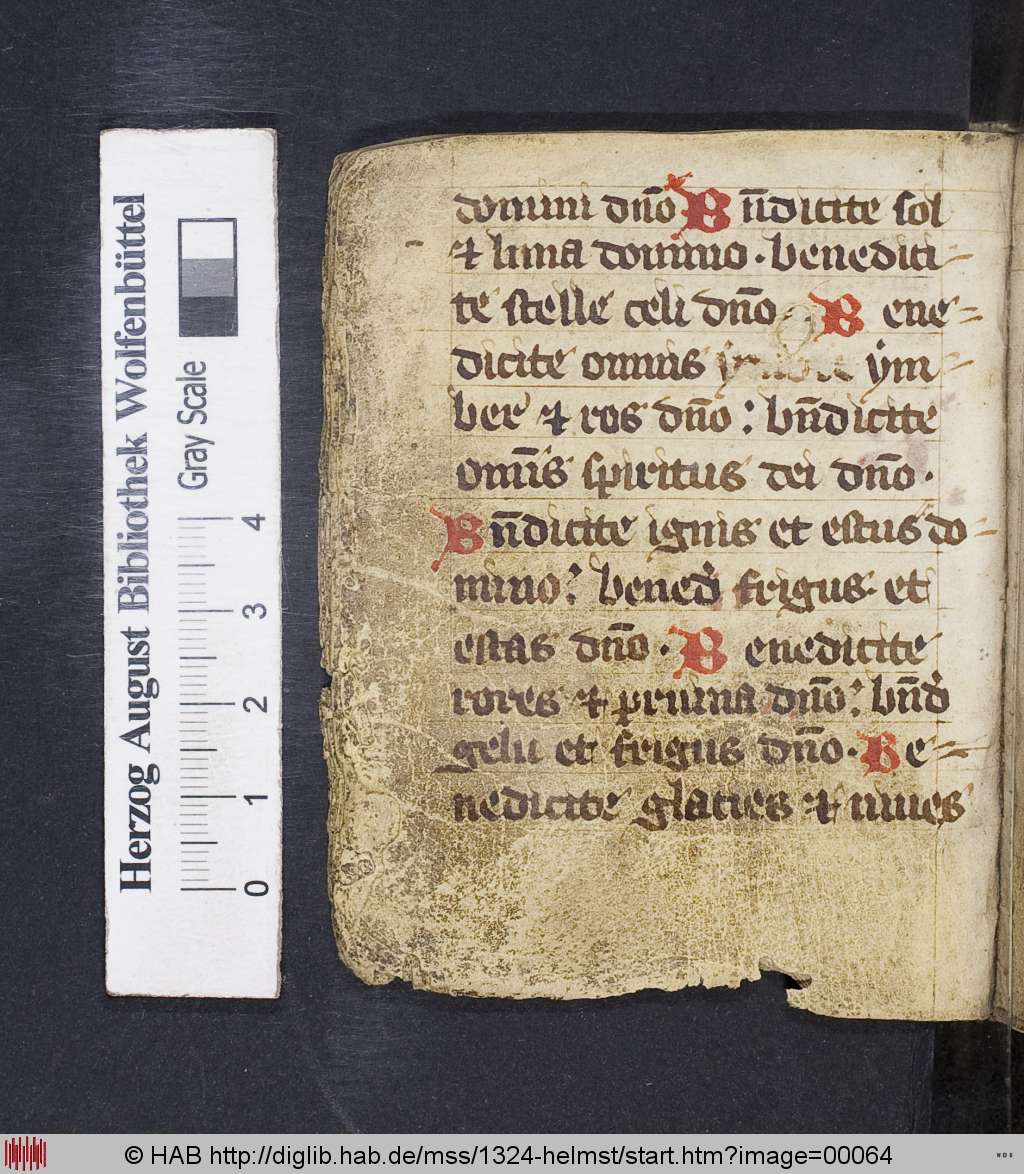 Herzog August Bibliothek Wolfenbüttel
Gray Scale
0 1 2 3 4
domini dn̄o Bn̄dicite sol
⁊ luna domino · benedici-
te stelle celi dn̄o · Bene-
dicite omnis ẏm
ber ⁊ ros dn̄o : bn̄dicite
om̄is spiritus dei dn̄o ·
Bn̄dicite ignis et estus do-
mino : bened̛ frigus et
estas dn̄o · Benedicite
rores ⁊ pruina dn̄o : bn̄d̛
gelu et frigus dn̄o · Be-
nedicite glacies ⁊ niues
© HAB http://diglib.hab.de/mss/1324-helmst/start.htm?image=00064